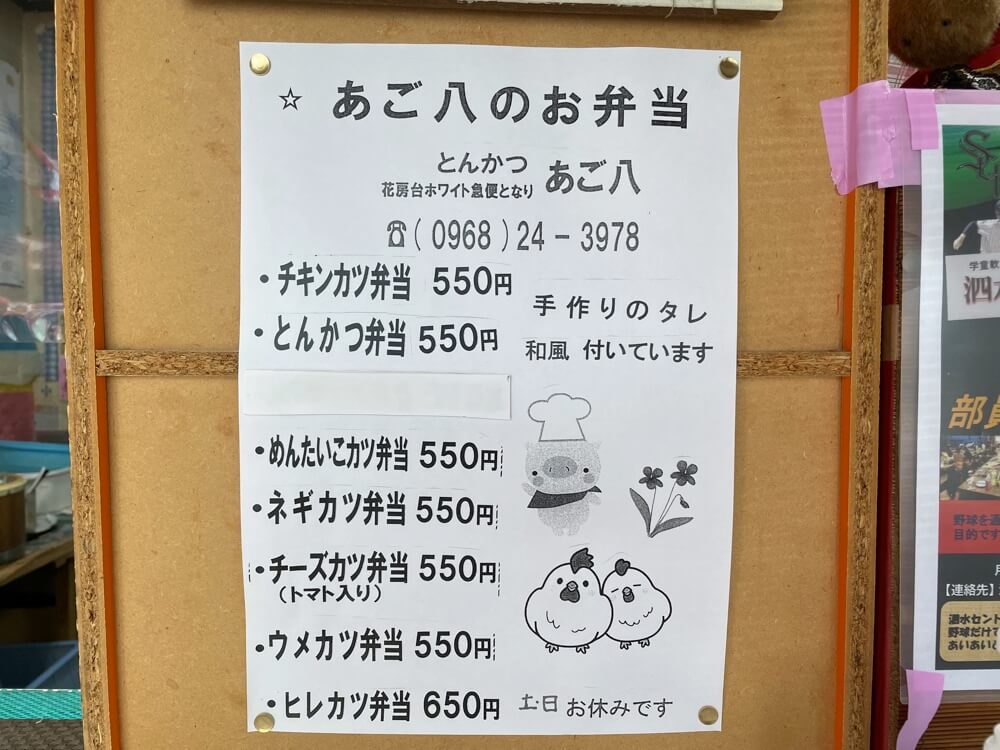 ☆ あご八のお弁当
とんかつ
花房台ホワイト急便となり
あご八
☎(0968)24-3978
・チキンカツ弁当 550円
・とんかつ弁当 550円
手作りのタレ
和風 付いています
・めんたいこカツ弁当 550円
・ネギカツ弁当 550円
・チーズカツ弁当 550円
(トマト入り)
・ウメカツ弁当 550円
・ヒレカツ弁当 650円
土・日 お休みです
学童軟
泗
部員
野球を通
目的です
【連絡先】
泗水セント
野球だけで
あいあいと